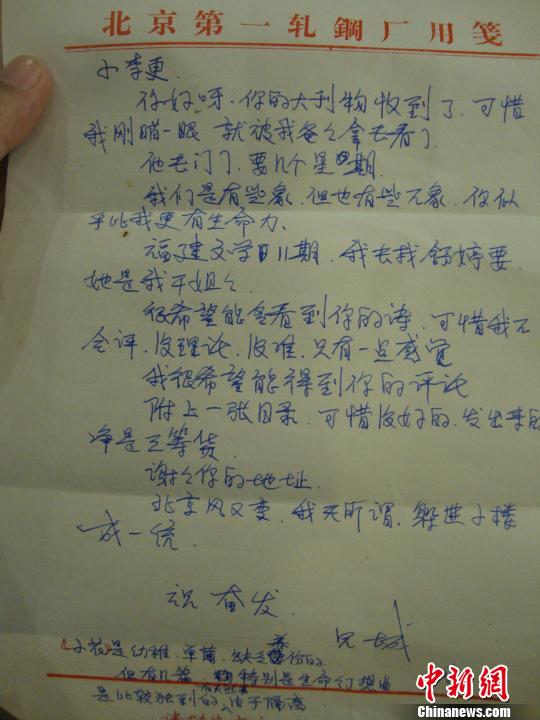 北京第一轧鋼厂用笺
小李更.
你好呀.你的大刊物收到了.可惜
我刚瞄一眼 就被我爸々拿去看了
他出门了.要几个星期.
我们是有些象.但也有些不象.你似
乎比我更有生命力、
福建文学 11期.我去找舒婷要.
她是我干姐々.
很希望能看到你的诗.可惜我不
会评.没理论.没准.只有一点感觉
我很希望能得到你的评论
附上一张目录.可惜没好的.发出来的
净是三等货.
谢々你的地址.
北京风又变.我无所谓.躲进小楼
成一统.
祝 奋发.
兄 城
《小花》是幼稚.单薄.缺乏养份的.
但有几篇.特别是生命幻想曲
是比较独到的.由于隔离
中新网
www.chinanews.com